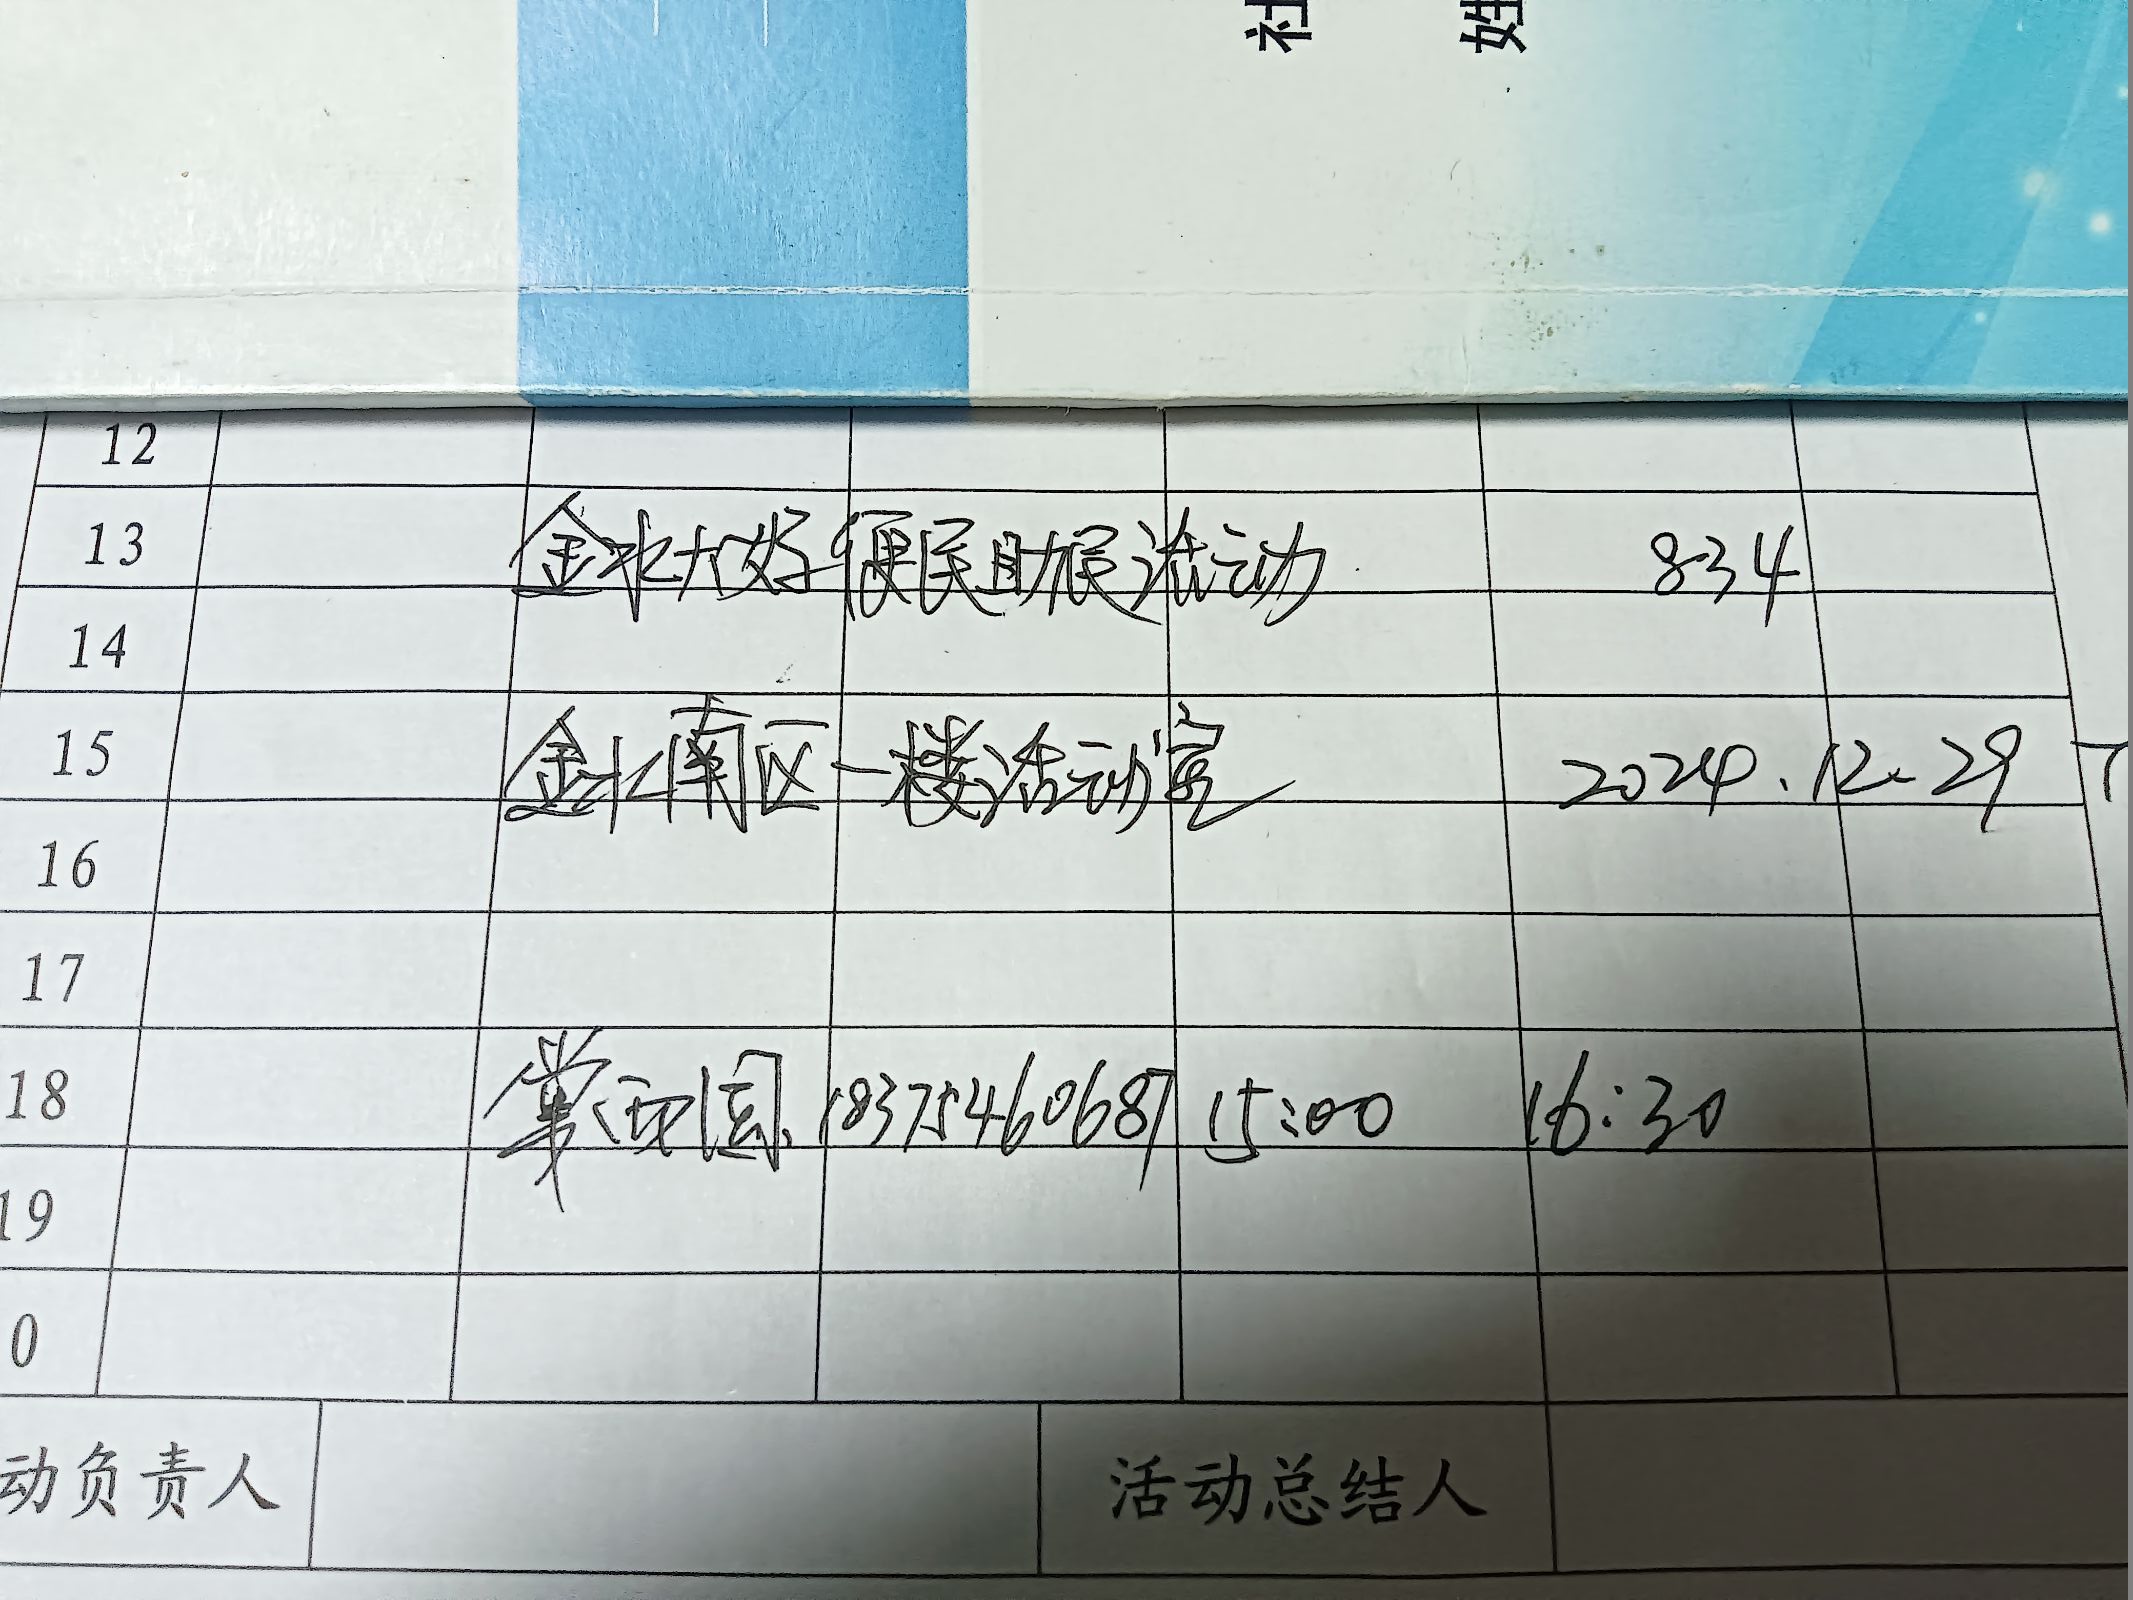 社 姓
12
13 金水大好便民助民活动 834
14
15 金水南区一楼活动室 2024.12.29
16
17
18 18375460687 15:00 16:30
19
0
动负责人 活动总结人